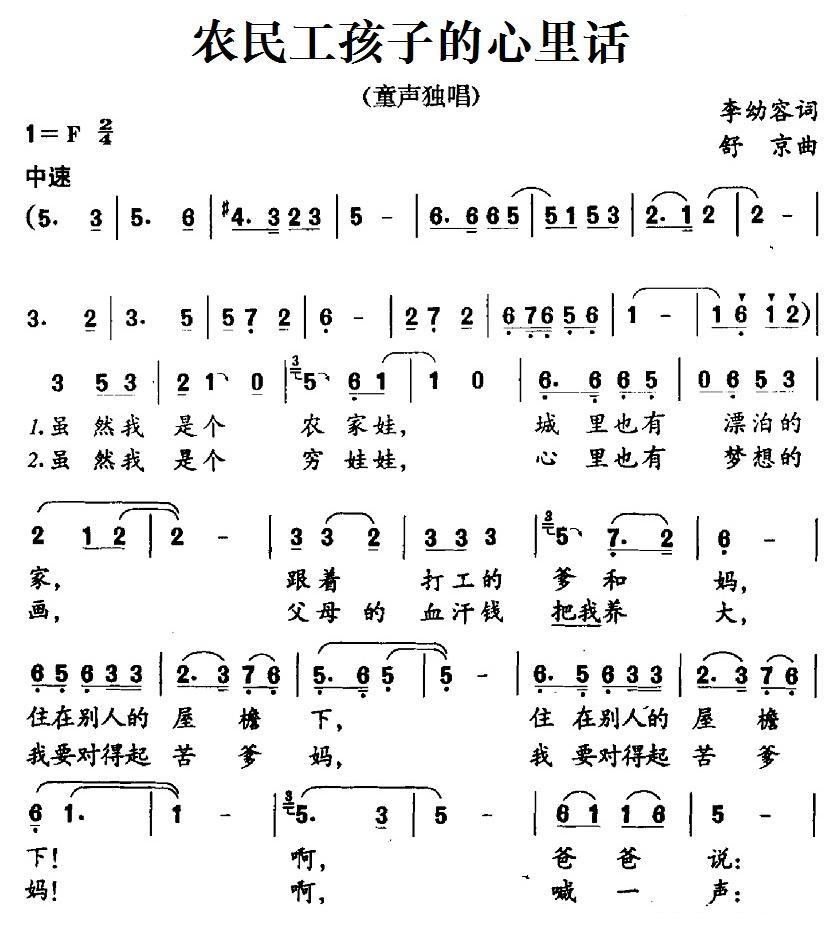 农民工孩子的心里话
(童声独唱)
李幼容词
1=F 2/4
舒 京曲
中速
(5. 3 | 5. 6 | #4. 3 2 3 | 5 - | 6. 6 6 5 | 5 1 5 3 | 2. 1 2 | 2 - |
3. 2 | 3. 5 | 5 7 2 | 6 - | 2 7 2 | 6 7 6 5 6 | 1 - | 1 6 1 2 )|
3 5 3 | 2 1 0 | 3 5 6 1 | 1 0 | 6. 6 6 5 | 0 6 5 3 |
1.虽 然我 是个 农 家娃, 城 里也有 漂泊的
2.虽 然我 是个 穷 娃娃, 心 里也有 梦想的
2 1 2 | 2 - | 3 3 2 | 3 3 3 | 3 5 7. 2 | 6 - |
家, 跟着 打工的 爹 和 妈,
画, 父母 的 血汗钱 把我养 大,
6 5 6 3 3 | 2. 3 7 6 | 5. 6 5 | 5 - | 6. 5 6 3 3 | 2. 3 7 6 |
住在别人的 屋 檐 下, 住 在别人的 屋 檐
我要对得起 苦 爹 妈, 我 要对得起 苦 爹
6 1. | 1 - | 3 5. 3 | 5 - | 6 1 1 6 | 5 - |
下! 啊, 爸 爸 说:
妈! 啊, 喊 一 声: